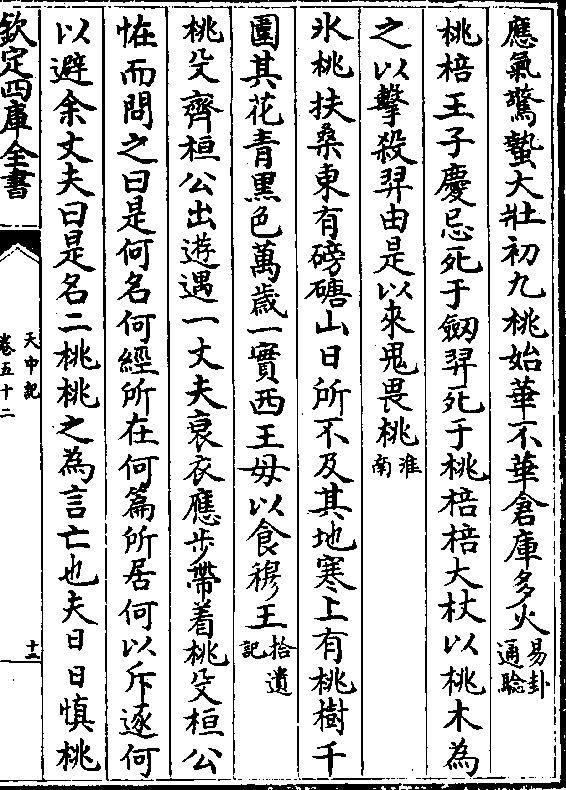 應氣驚蟄大壯初九桃始華不華倉庫多火易卦通騐
桃棓王子慶忌死于劔羿死于桃棓棓大杖以桃木為
之以擊殺羿由是以來鬼畏桃淮南
氷桃扶桑東有磅磄山日所不及其地寒上有桃樹千
圍其花青黑色萬歳一實西王母以食穆王拾遺記
桃殳齊桓公出遊遇一丈夫裒衣應步帶着桃殳桓公
恠而問之曰是何名何經所在何篇所居何以斥逐何
以避余丈夫曰是名二桃桃之為言亡也夫日日慎桃
欽定四庫全書
天中記
卷五十二
十二